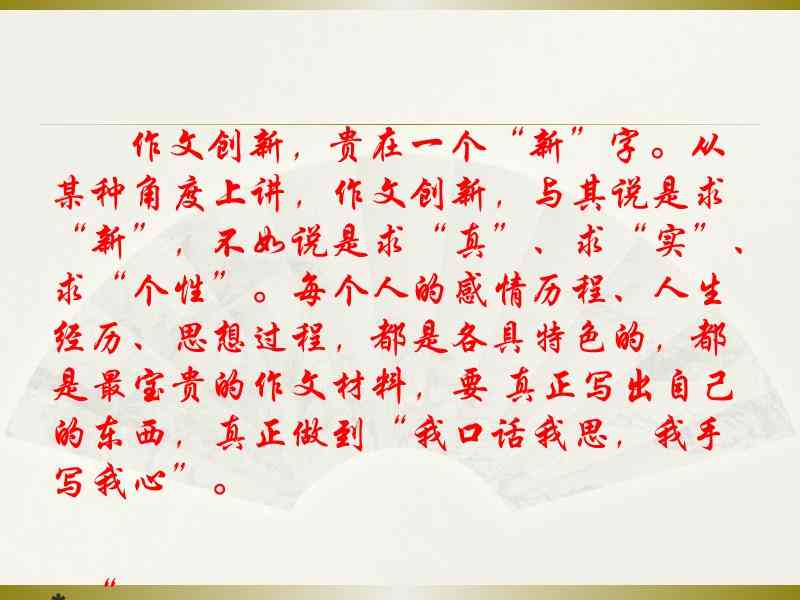 作文创新，贵在一个“新”字。从
某种角度上讲，作文创新，与其说是求
“新”，不如说是求“真”、求“实”、
求“个性”。每个人的感情历程、人生
经历、思想过程，都是各具特色的，都
是最宝贵的作文材料，要 真正写出自己
的东西，真正做到“我口话我思，我手
写我心”。
“
*